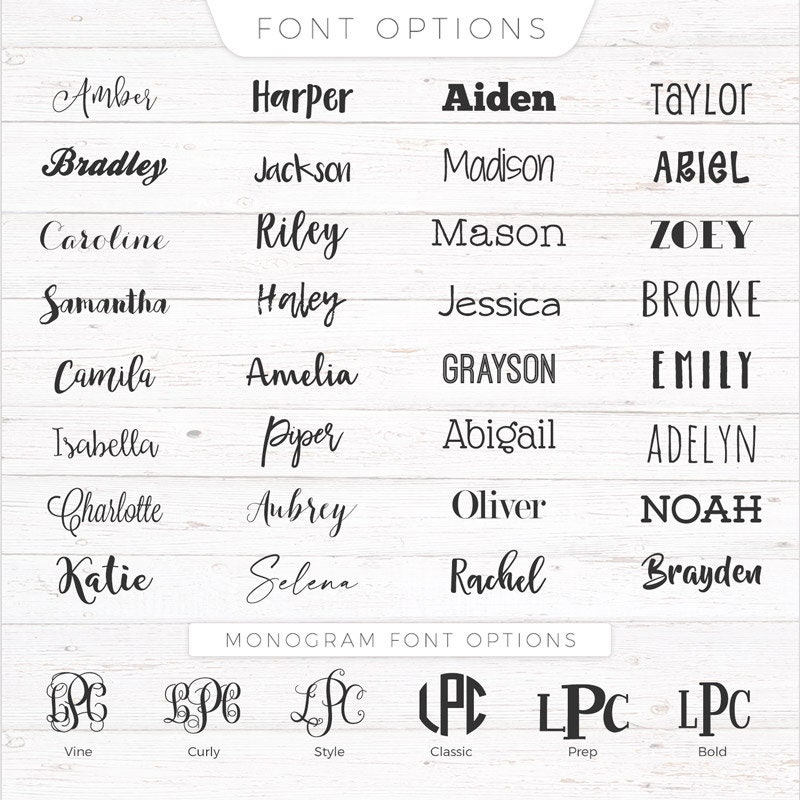 FONT OPTIONS
Amber Harper Aiden TaYLOr
Bradley Jackson Madison ARIeL
Caroline Riley Mason ZOEY
Samantha Haley Jessica BROOKE
Camila Amelia GRAYSON EMILY
Isabella Piper Abigail ADELYN
Charlotte Aubrey Oliver NOAH
Katie Selena Rachel Brayden
MONOGRAM FONT OPTIONS
LPC LPC LPC LPC LPC LPC
Vine Curly Style Classic Prep Bold